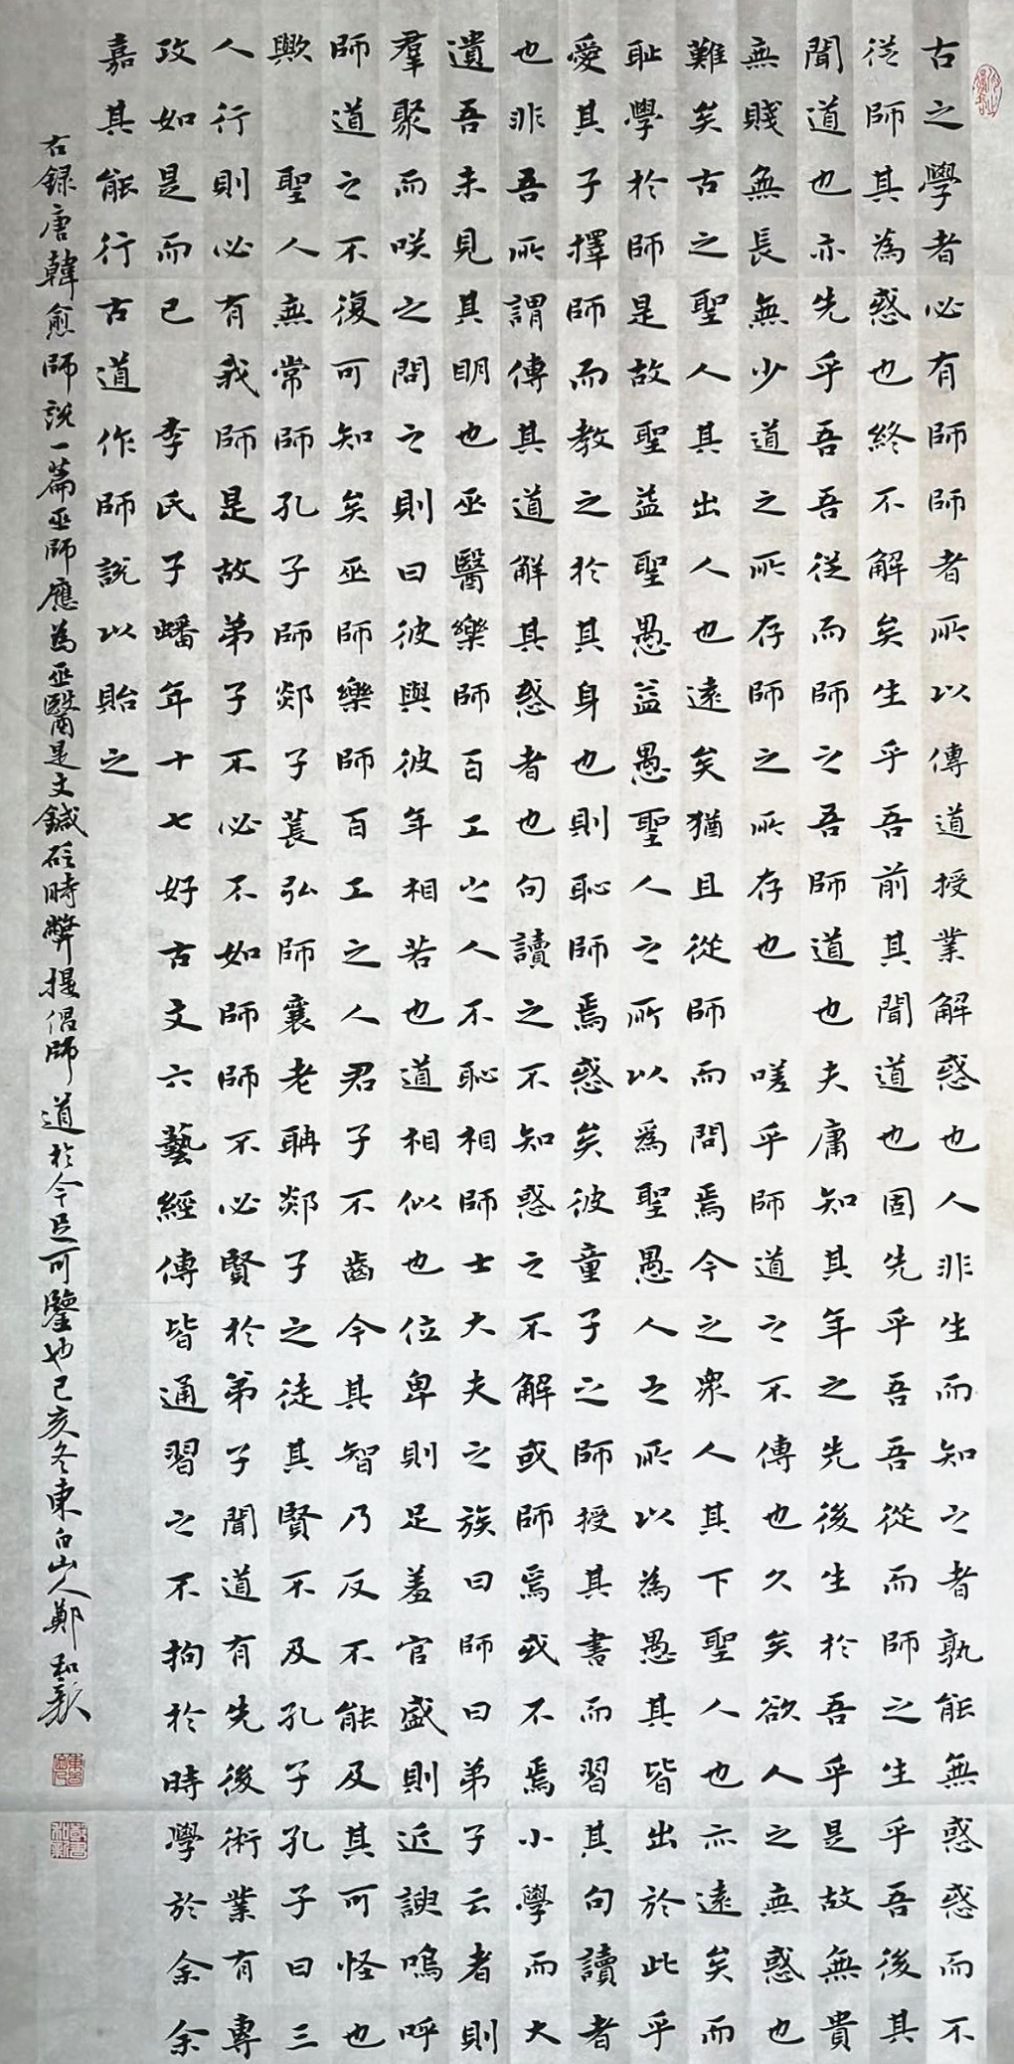 古之學者必有師師者所以傳道授業解惑也人非生而知之者孰能無惑惑而不
從師其為惑也終不解矣生乎吾前其聞道也固先乎吾吾從而師之生乎吾後其
聞道也亦先乎吾吾從而師之吾師道也夫庸知其年之先後生於吾乎是故無貴
無賤無長無少道之所存師之所存也嗟乎師道之不傳也久矣欲人之無惑也
難矣古之聖人其出人也遠矣猶且從師而問焉今之衆人其下聖人也亦遠矣而
恥學於師是故聖益聖愚益愚聖人之所以為聖愚人之所以為愚其皆出於此乎
愛其子擇師而教之於其身也則恥師焉惑矣彼童子之師授其書而習其句讀者
也非吾所謂傳其道解其惑者也句讀之不知惑之不解或師焉或不焉小學而大
遺吾未見其明也巫醫樂師百工之人不恥相師士大夫之族曰師曰弟子云者則
羣聚而咲之問之則曰彼與彼年相若也道相似也位卑則足羞官盛則近諛嗚呼
師道之不復可知矣巫師樂師百工之人君子不齒今其智乃反不能及其可怪也
歟聖人無常師孔子師郯子萇弘師襄老聃郯子之徒其賢不及孔子孔子曰三
人行則必有我師是故弟子不必不如師師不必賢於弟子聞道有先後術業有專
攻如是而已 李氏子蟠年十七好古文六藝經傳皆通習之不拘於時學於余余
嘉其能行古道作師說以貽之
右録唐韓愈師說一篇巫師應為巫醫是文鍼砭時弊提倡師道於今足可鑒也己亥冬東白山人鄭和新